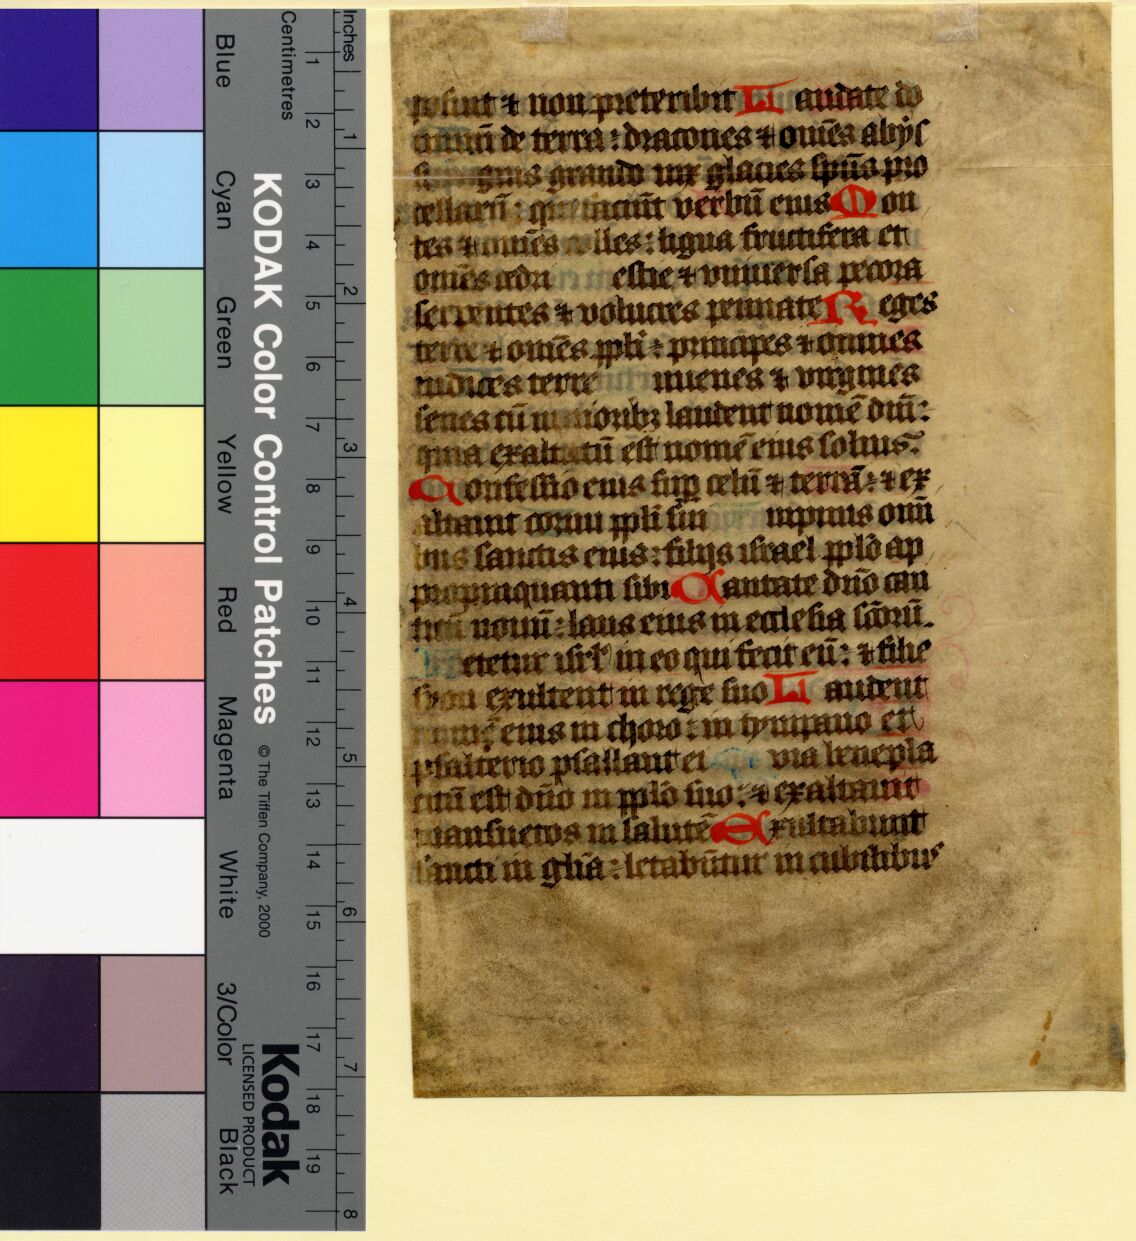 Inches
Centimetres
1 2 3 4 5 6 7 8 9 10 11 12 13 14 15 16 17 18 19
1 2 3 4 5 6 7 8
KODAK Color Control Patches © The Tiffen Company, 2000
Kodak
LICENSED PRODUCT
Blue Cyan Green Yellow Red Magenta White 3/Color Black
posuit ⁊ non preteribit Laudate do
minū de terra : dracones ⁊ om̄es abys
gnis grando nix glacies sp̄us pro
cellarū : que faciūt verbū eius Mon
tes ⁊ om̄es colles : ligna fructifera et
om̄es cedri estie ⁊ vniuersa pecora
serpentes ⁊ volucres pennate Reges
terre ⁊ om̄es ppl̄i : principes ⁊ omnes
iudices terre iuuenes ⁊ virgines
senes cū iunioribꝫ laudent nomē dn̄i :
quia exaltatū est nomē eius solius.
Confessio eius sup celū ⁊ terrā : ⁊ ex
altauit cornu ppl̄i sui impnus omi
bus sanctis eius : filijs israel ppl̄o ap
propinquanti sibi Cantate dn̄o can
ticū nouū : laus eius in ecclesia sc̄orū.
etetur isrl̄ in eo qui fecit eū : ⁊ filie
syon exultent in rege suo Laudent
nomē eius in choro : in tympano et
psalterio psallant ei uia benepla
citū est dn̄o in ppl̄o suo : ⁊ exaltauit
mansuetos in salutē Exultabunt
sancti in gl̄ia : letabūtur in cubilibus